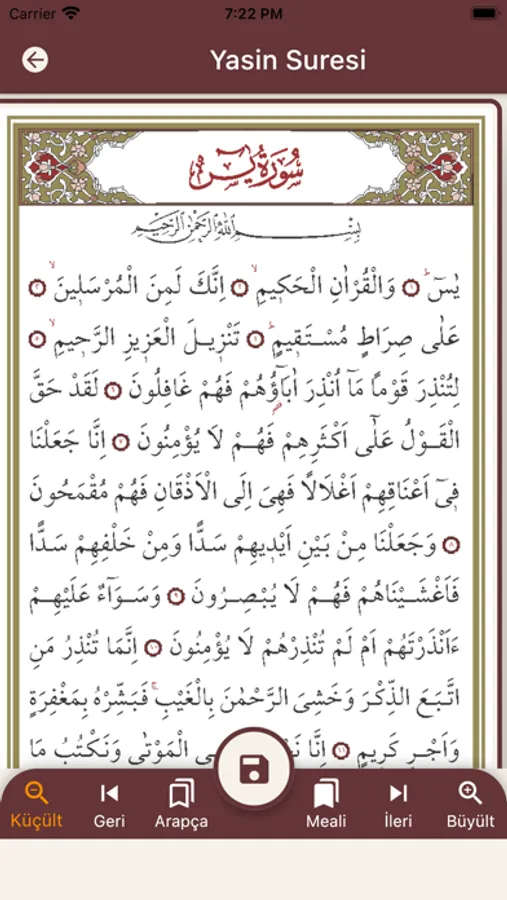 Carrier 7:22 PM
Yasin Suresi
سُورَةُ يٰسٓ
بِسْمِ اللّٰهِ الرَّحْمٰنِ الرَّحِيمِ
يٰسٓ ۚ ﴿١﴾ وَالْقُرْاٰنِ الْحَكٖيمِ ۙ ﴿٢﴾ اِنَّكَ لَمِنَ الْمُرْسَلٖينَ ۙ ﴿٣﴾
عَلٰى صِرَاطٍ مُسْتَقٖيمٍ ۜ ﴿٤﴾ تَنْزٖيلَ الْعَزٖيزِ الرَّحٖيمِ ۙ ﴿٥﴾
لِتُنْذِرَ قَوْمًا مَٓا اُنْذِرَ اٰبَٓاؤُ۬هُمْ فَهُمْ غَافِلُونَ ﴿٦﴾ لَقَدْ حَقَّ
الْقَوْلُ عَلٰٓى اَكْثَرِهِمْ فَهُمْ لَا يُؤْمِنُونَ ﴿٧﴾ اِنَّا جَعَلْنَا
فٖٓى اَعْنَاقِهِمْ اَغْلَالًا فَهِىَ اِلَى الْاَذْقَانِ فَهُمْ مُقْمَحُونَ
﴿٨﴾ وَجَعَلْنَا مِنْ بَيْنِ اَيْدٖيهِمْ سَدًّا وَمِنْ خَلْفِهِمْ سَدًّا
فَاَغْشَيْنَاهُمْ فَهُمْ لَا يُبْصِرُونَ ﴿٩﴾ وَسَوَٓاءٌ عَلَيْهِمْ
ءَاَنْذَرْتَهُمْ اَمْ لَمْ تُنْذِرْهُمْ لَا يُؤْمِنُونَ ﴿١٠﴾ اِنَّمَا تُنْذِرُ مَنِ
اتَّبَعَ الذِّكْرَ وَخَشِىَ الرَّحْمٰنَ بِالْغَيْبِ ۚ فَبَشِّرْهُ بِمَغْفِرَةٍ
وَاَجْرٍ كَرٖيمٍ ﴿١١﴾ اِنَّا الْمَوْتٰى وَنَكْتُبُ مَا
Küçült Geri Arapça Meali İleri Büyült